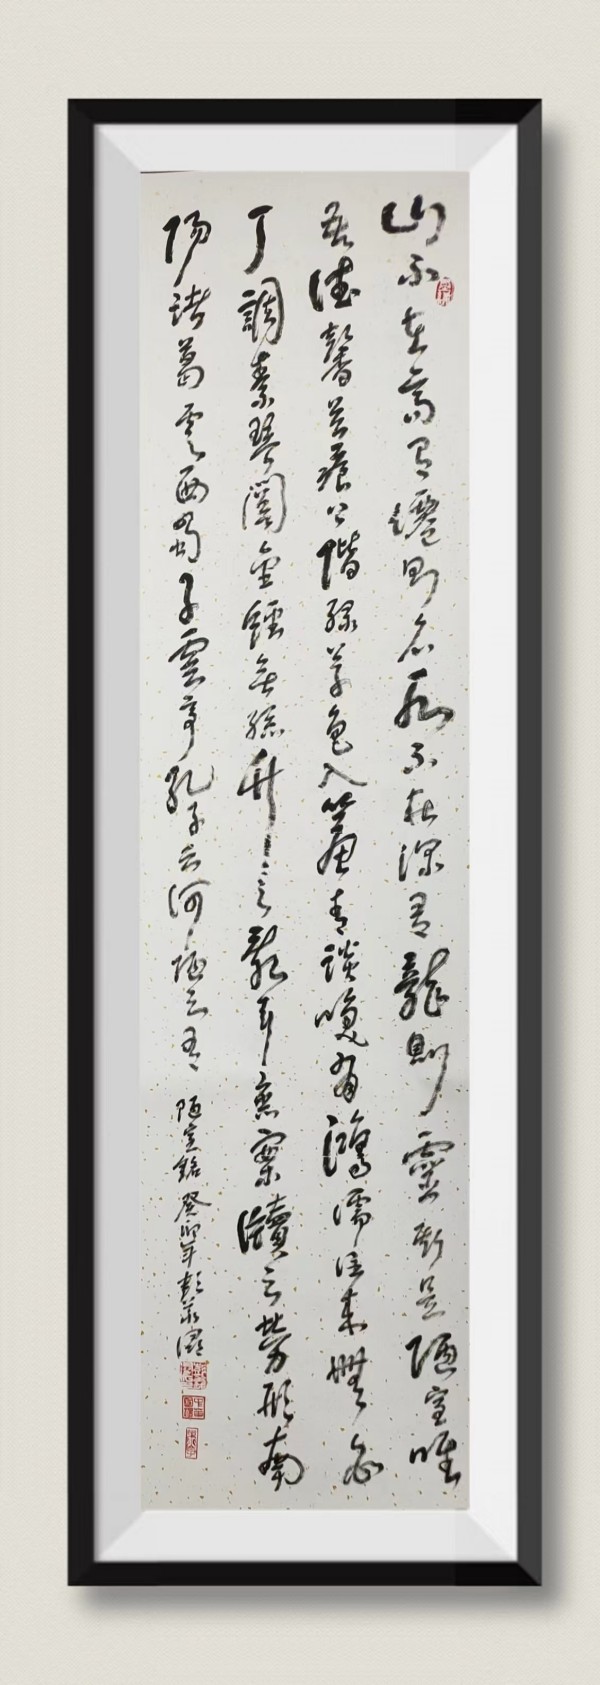 山不在高有僊則名水不在深有龍則靈斯是陋室唯
吾德馨苔痕上階綠草色入簾青談咲有鴻儒往來無白
丁調素琴閱金經無絲竹之亂耳無案牘之勞形南
陽諸葛廬西蜀子雲亭孔子云何陋之有
陋室銘 癸卯年彭